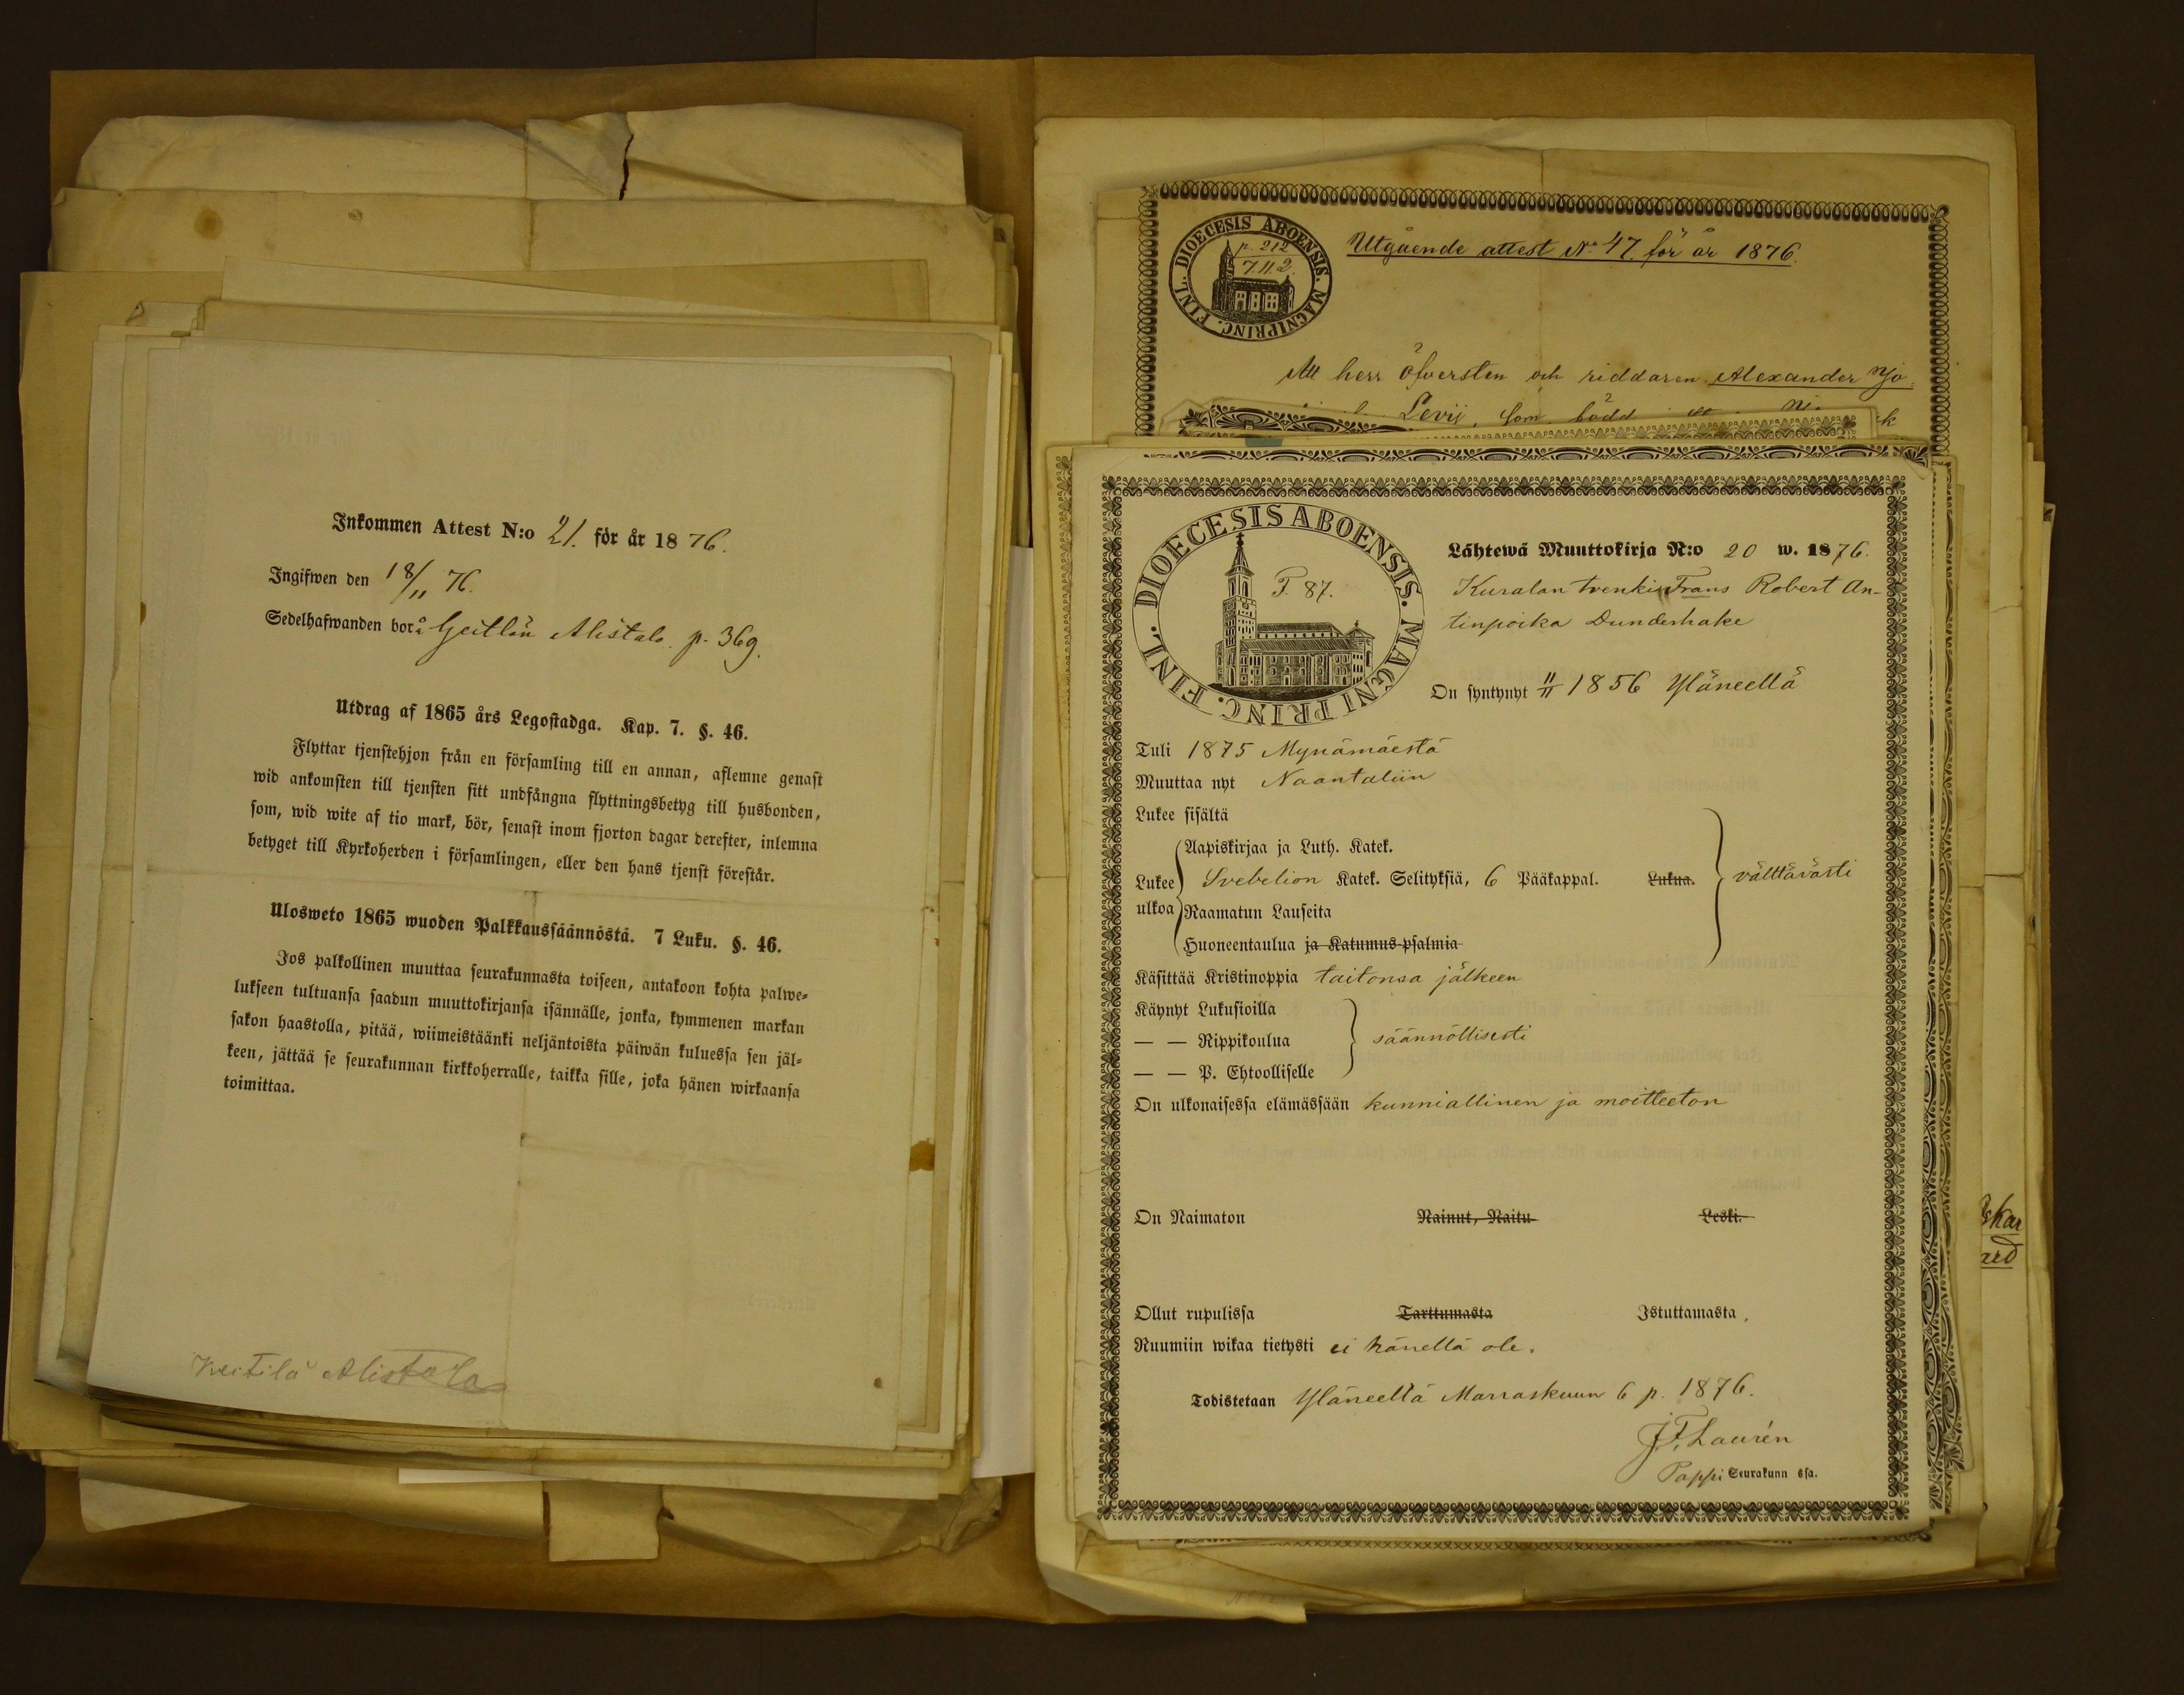 Inkommen Attest N:o 21. för år 1876.
Ingifwen den 18/11 76.
Sedelhafwanden bor å Geitlän Alistalo. p. 369.
Utdrag af 1865 års Legostadga. Kap. 7. §. 46.
Flyttar tjenstehjon från en församling till en annan, aflemne genast
wid ankomsten till tjensten sitt undfångna flyttningsbetyg till husbonden,
som, wid wite af tio mark, bör, senast inom fjorton dagar derefter, inlemna
betyget till Kyrkoherden i församlingen, eller den hans tjenst förestår.
Ulosweto 1865 wuoden Palkkaussäännöstä. 7 Luku. §. 46.
Jos palkollinen muuttaa seurakunnasta toiseen, antakoon kohta palwe-
lukseen tultuansa saadun muuttokirjansa isännälle, jonka, kymmenen markan
sakon haastolla, pitää, wiimeistäänki neljäntoista päiwän kuluessa sen jäl-
keen, jättää se seurakunnan kirkkoherralle, taikka sille, joka hänen wirkaansa
toimittaa.
Keitilä Alistalo
DIOECESIS ABOENSIS. MAGNI PRINC. FINL.
p. 212
7.11.2.
Utgående attest No 47. för år 1876.
Att herr öfversten och riddaren Alexander
Levij, som född
k
DIOECESIS ABOENSIS. MAGNI PRINC. FINL.
P. 87.
Lähtewä Muuttokirja N:o 20 w. 1876.
Kuralan trenki Frans Robert An-
tinpoika Dunderhake
On syntynyt 11/11 1856 Yläneellä
Tuli 1875 Mynämäestä
Muuttaa nyt Naantaliin
Lukee sisältä
Aapiskirjaa ja Luth. Katek.
Lukee ulkoa Svebelion Katek. Selityksiä, 6 Pääkappal. Lukua. välttävästi
Raamatun Lauseita
Huoneentaulua ja Katumus-psalmia
Käsittää Kristinoppia taitonsa jälkeen
Käynyt Lukusioilla
— — Rippikoulua säännöllisesti
— — P. Ehtoolliselle
On ulkonaisessa elämässään kunniallinen ja moitteeton
On Naimaton Nainut, Naitu Leski.
Ollut rupulissa Tarttumasta Istuttamasta.
Ruumiin wikaa tietysti ei hänellä ole.
Todistetaan Yläneellä Marraskuun 6 p. 1876.
J. F. Laurén
Pappi Seurakunnassa.